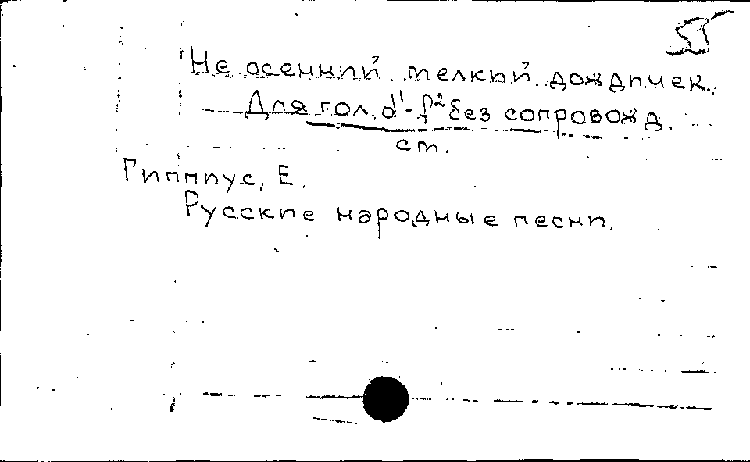 55
Не осенний мелкий дождичек.
Для гол. d¹-f² без сопровожд.
ст.
Гиппиус, Е.
Русские народные песни.